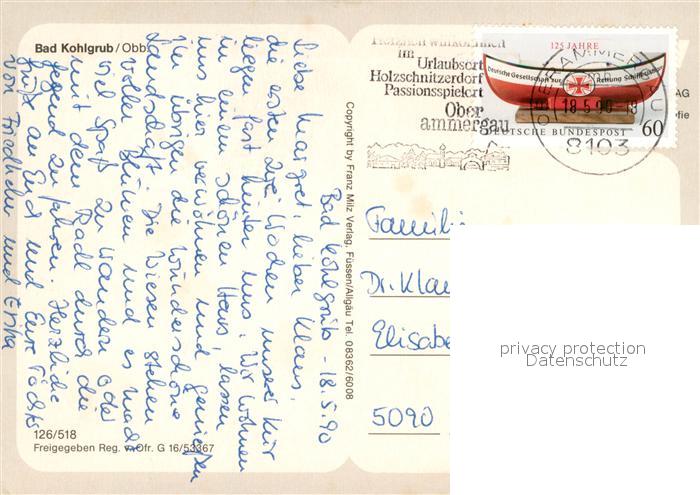 Bad Kohlgrub / Obb.
Bad Kohlgrub - 18.5.90
Liebe Margret, lieber Klaus,
die ersten zwei Wochen unserer Kur
liegen fast hinter uns. Wir wohnen
in einem schönen Haus, lassen
uns hier verwöhnen und genießen
im übrigen die wunderschöne
Landschaft. Die Wiesen stehen
voller Blumen und es macht
viel Spaß zu wandern oder
mit dem Radl durch die
Gegend zu fahren. Herzliche
Grüße an Euch und Eure Töchter
von Friedhelm und Erika
126/518
Freigegeben Reg. v. Ofr. G 16/53367
Copyright by Franz Milz Verlag, Füssen/Allgäu Tel. 08362/6008
Herzlich willkommen
im
Urlaubsort
Holzschnitzerdorf
Passionsspielort
Ober
ammergau
125 JAHRE
Deutsche Gesellschaft zur Rettung Schiffbrüchiger
DEUTSCHE BUNDESPOST 60
OBERAMMERGAU
18.5.90-18
8103
AG
Familie
Dr. Klau
Elisabe
5090
privacy protection
Datenschutz